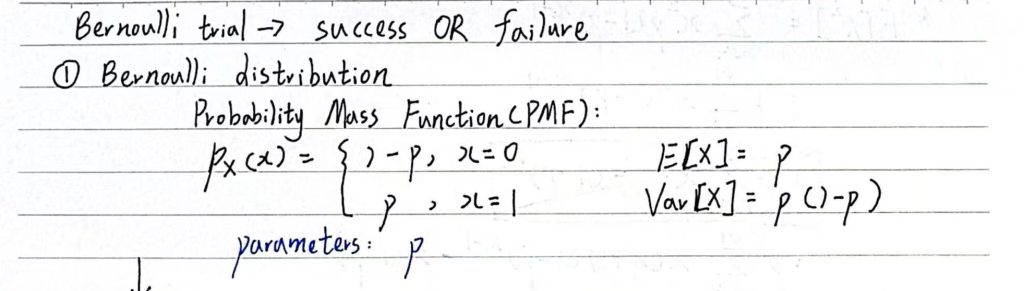 Bernoulli trial → success OR failure
① Bernoulli distribution
Probability Mass Function (PMF):
pₓ(x) = { 1-p, x=0    E[X] = p
p, x=1    Var[X] = p(1-p)
parameters: p
↓